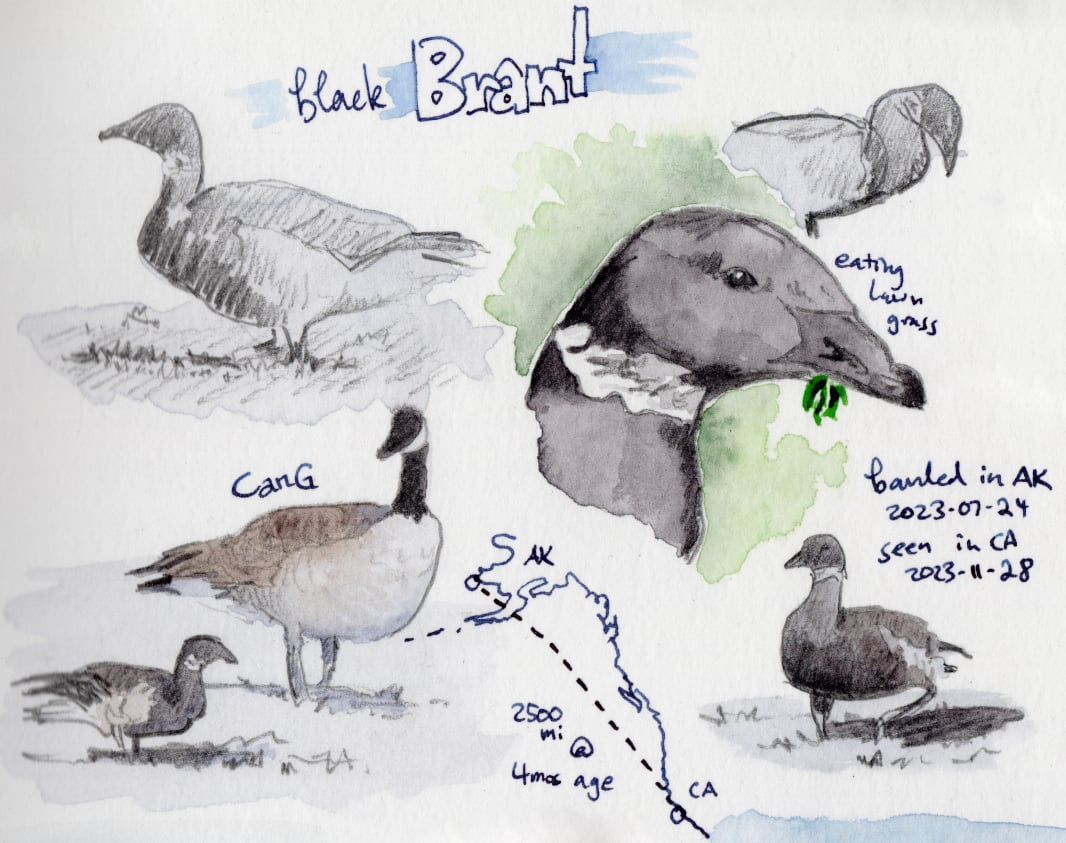 black Brant
eating
lawn
grass
CanG
banded in AK
2023-07-24
seen in CA
2023-11-28
AK
2500
mi
@
4mos age
CA